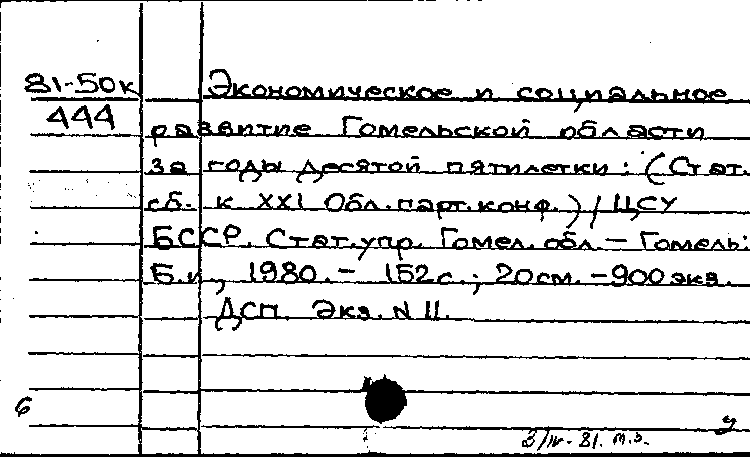 81-50к
444
Экономическое и социальное
развитие Гомельской области
за годы десятой пятилетки: (Стат.
сб. к XXI Обл. парт. конф.) / ЦСУ
БССР. Стат. упр. Гомел. обл. — Гомель:
Б.и, 1980. — 152с.; 20см. — 900 экз.
ДСП. Экз. N 11.
6
3/IV-81. т.э.